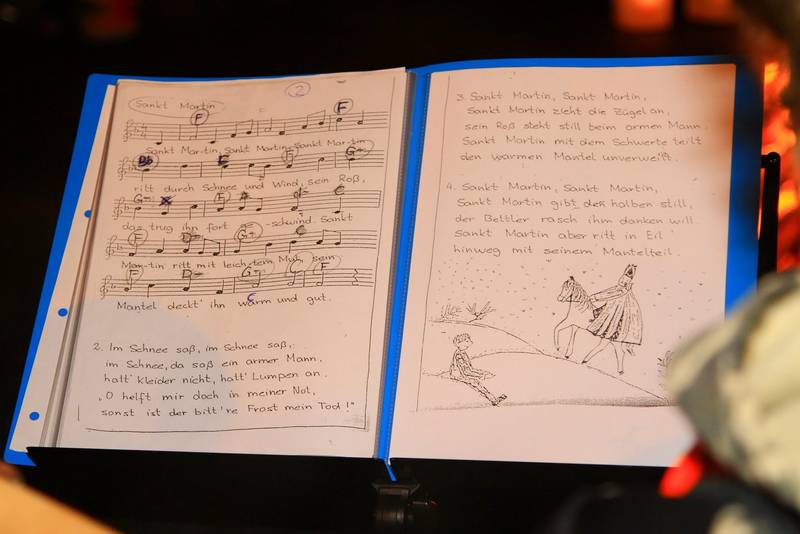 Sankt Martin
2
F F
Sankt Mar-tin, Sankt Martin, Sankt Mar-tin
Bb C F G-
ritt durch Schnee und Wind, sein Roß,
G- F C
das trug ihn fort -schwind. Sankt
F D- G- C
Mar-tin ritt mit leich-tem Mut, sein
F D- G- C F
Mantel deckt' ihn warm und gut.
2. Im Schnee saß, im Schnee saß,
im Schnee, da saß ein armer Mann,
hatt' Kleider nicht, hatt' Lumpen an.
„O helft mir doch in meiner Not,
sonst ist der bitt're Frost mein Tod!"
3. Sankt Martin, Sankt Martin,
Sankt Martin zieht die Zügel an,
sein Roß steht still beim armen Mann.
Sankt Martin mit dem Schwerte teilt
den warmen Mantel unverweilt.
4. Sankt Martin, Sankt Martin,
Sankt Martin gibt den halben still,
der Bettler rasch ihm danken will.
Sankt Martin aber ritt in Eil'
hinweg mit seinem Mantelteil